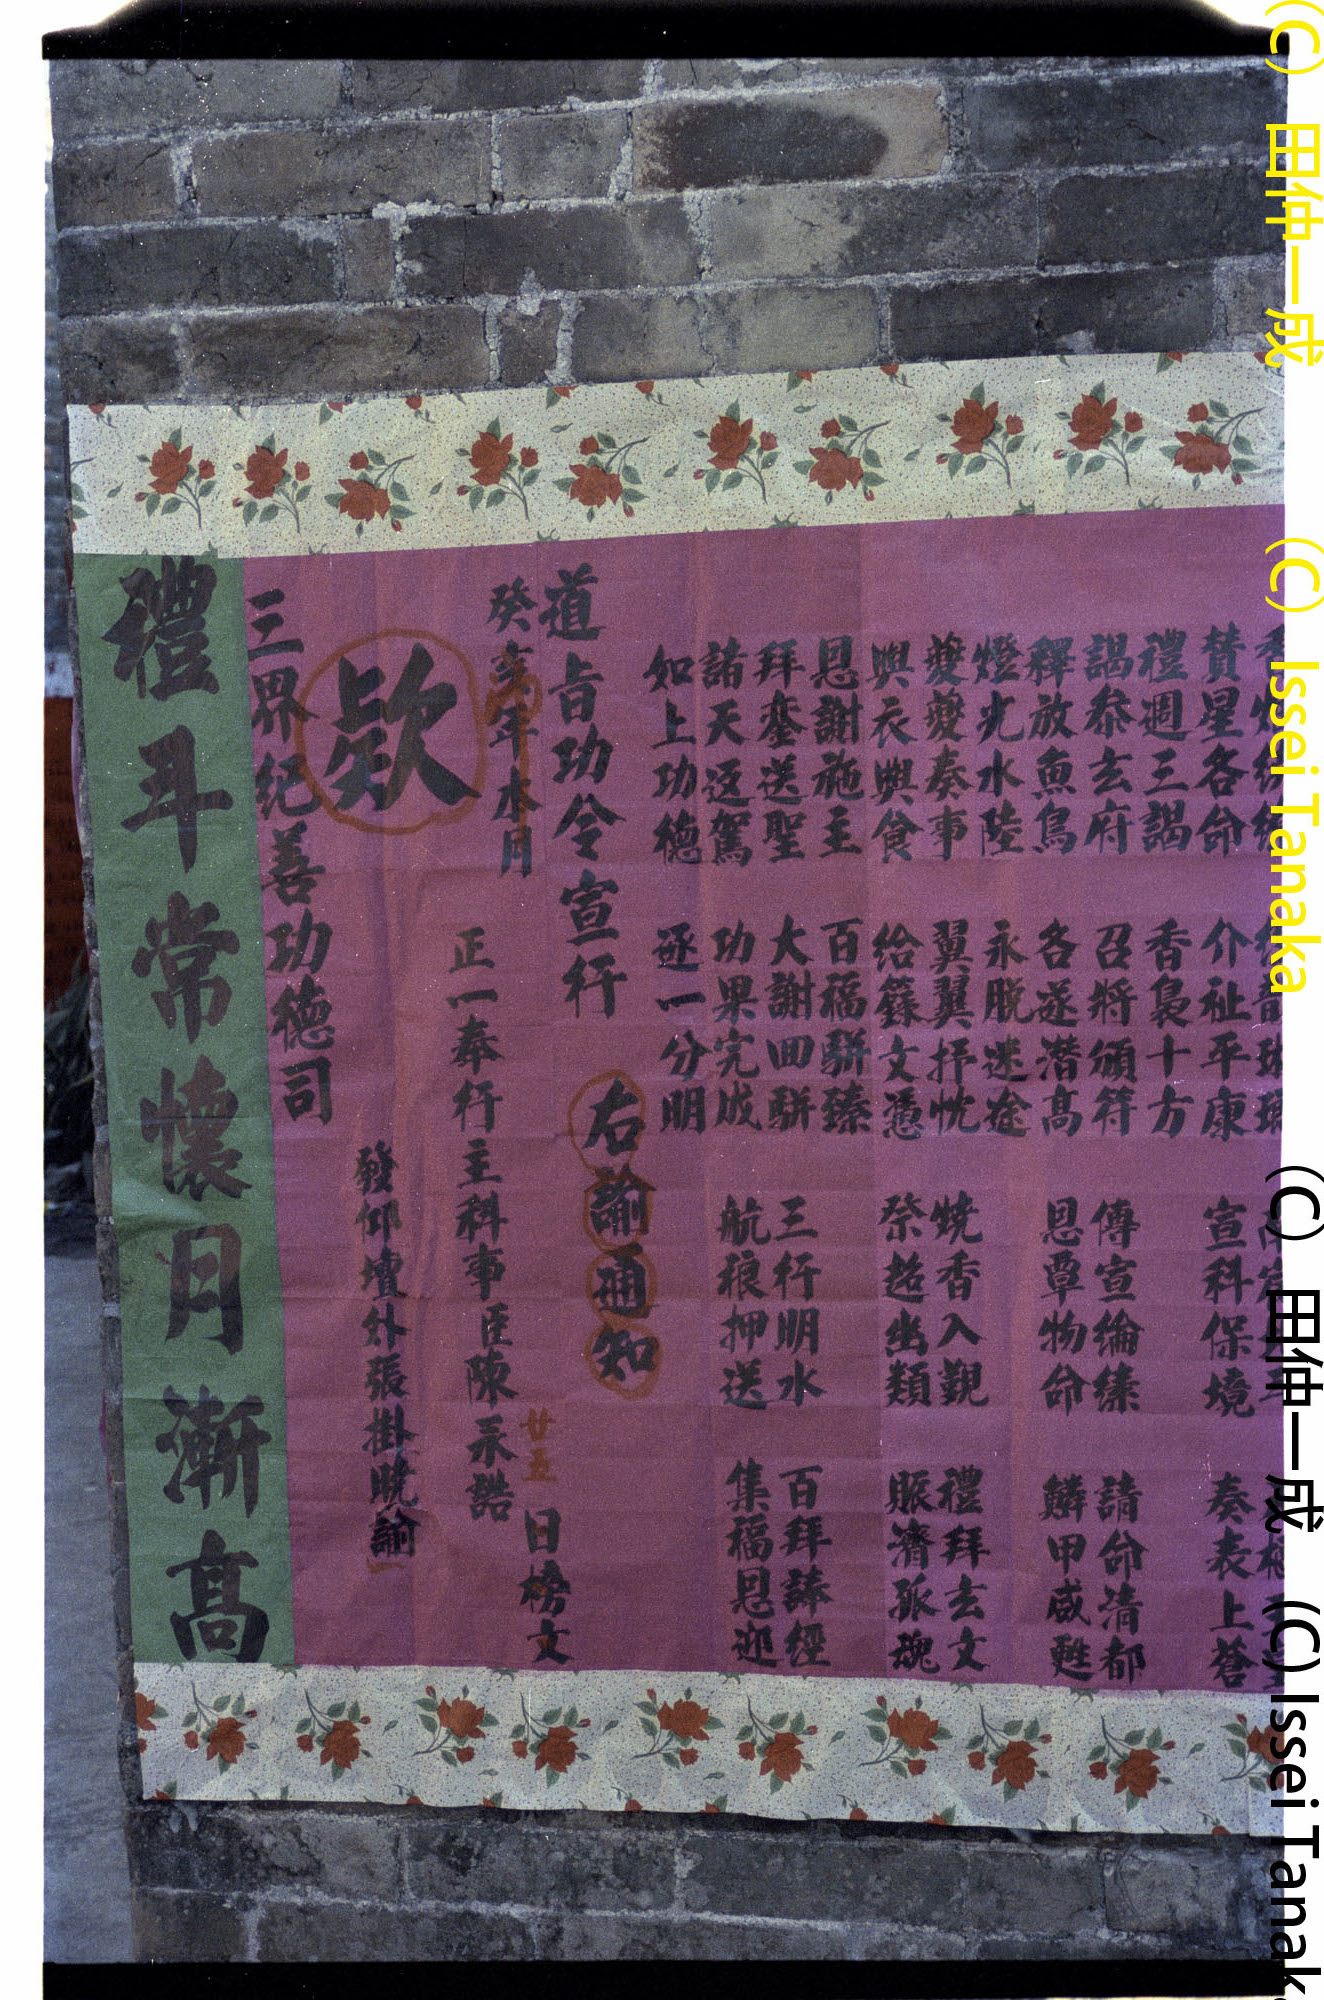 贊星各命 介祉平康 宣科保境 奏表上蒼
禮週三謁 香裊十方
謁叅玄府 召將頒符 傳宣綸 請命清都
釋放魚鳥 各遂潛高 恩覃物命 鱗甲咸甦
燈光水陸 永脫迷途
夔夔奏事 翼翼抒忱 燒香入覲 禮拜玄文
與衣與食 给籙文憑 祭超幽類 賑濟孤魂
恩謝施主 百福駢臻
拜送聖 大謝回駢 三行明水 百拜誦經
諸天返駕 功果完成 航押送 集福恩迎
如上功德 逐一分明
道旨功令宣行
右諭通知
癸亥年本月 廿五 日榜文
正一奉行主科事臣陳永誥
欵
發仰壇外張掛曉諭
三界紀善功德司
禮斗常懷日漸高
(C) 田仲一成 (C) Issei Tanaka
(C) 田仲一成 (C) Issei Tanaka